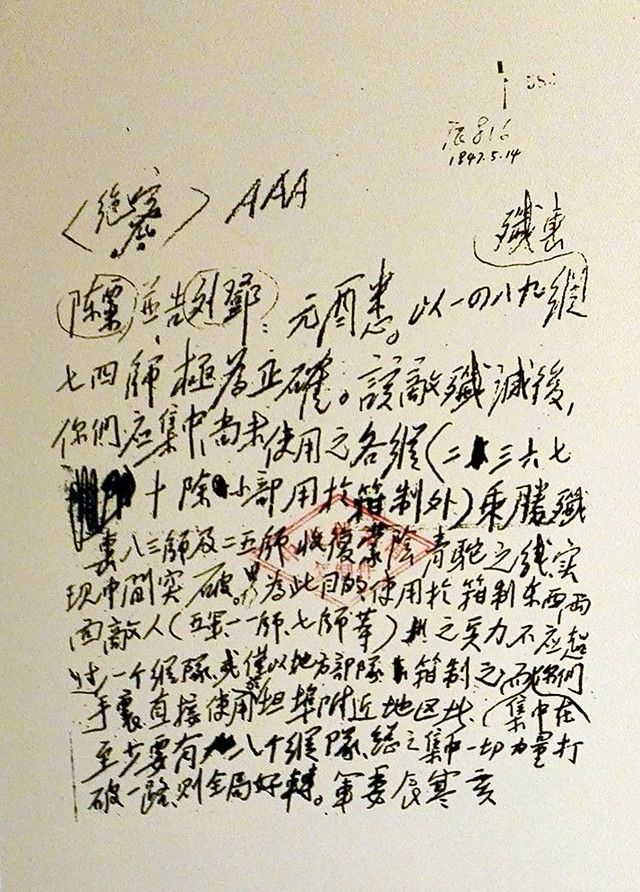 1947.5.14
〈絕密〉AAA
殲其
陈粟並告刘鄧：元酉悉。以一四八九縱
七四師極為正確。該敵殲滅後，
你們应集中尚未使用之各縱（二三六七
十除小部用於箝制外）乘勝殲
其八三師及二五師收復蒙陰青駝之线实
現中間突破。为此目的使用於箝制东西两
面敵人（五军一一師、七師等）之实力不应超
过一个縱隊或僅以地方部隊箝制之而你們
手裏直接使用坦埠附近地区（集中在
至少要有八个縱隊总之集中一切力量打
破一路則全局好轉。軍委辰寒亥